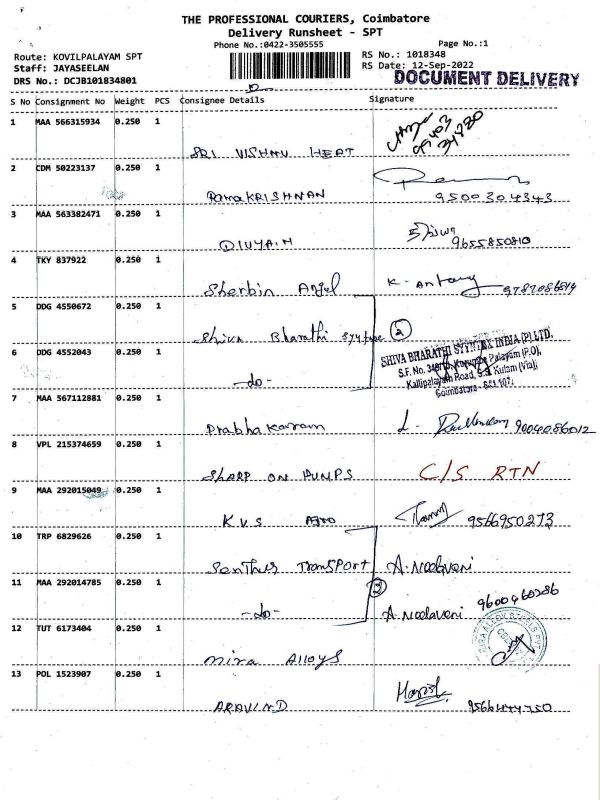 THE PROFESSIONAL COURIERS, Coimbatore
Delivery Runsheet - SPT
Phone No.:0422-3505555
Page No.:1
Route: KOVILPALAYAM SPT
RS No.: 1018348
Staff: JAYASEELAN
RS Date: 12-Sep-2022
DRS No.: DCJB101834801
DOCUMENT DELIVERY
S No Consignment No Weight PCS Consignee Details Signature
1 MAA 566315934 0.250 1
SRI VISHNU HEAT
2 CDM 50223137 0.250 1
RamaKRISHNAN 9500304343
3 MAA 563382471 0.250 1
DIVYAIH 9655850810
4 TKY 837922 0.250 1
Sherbin Anjel K. Antony 9787086814
5 DDG 4550672 0.250 1
Shiva Bharathi 2
6 DDG 4552043 0.250 1
-do-
SHIVA BHARATHI SYNTEX INDIA (P) LTD.
Palayam (P.O),
Kallipalayam Road, S.S. Kulam (Via),
Coimbatore - 641 107.
7 MAA 567112881 0.250 1
Prabhakaram 9004086012
8 VPL 215374659 0.250 1
SHARP ON PUMPS C/S RTN
9 MAA 292015049 0.250 1
KVS 9566950273
10 TRP 6829626 0.250 1
Senthur TransPORT A. Neelaveni
11 MAA 292014785 0.250 1
2
-do- A. Neelaveni 9600460286
12 TUT 6173404 0.250 1
mira Alloys
13 POL 1523907 0.250 1
ARAVIND Harish